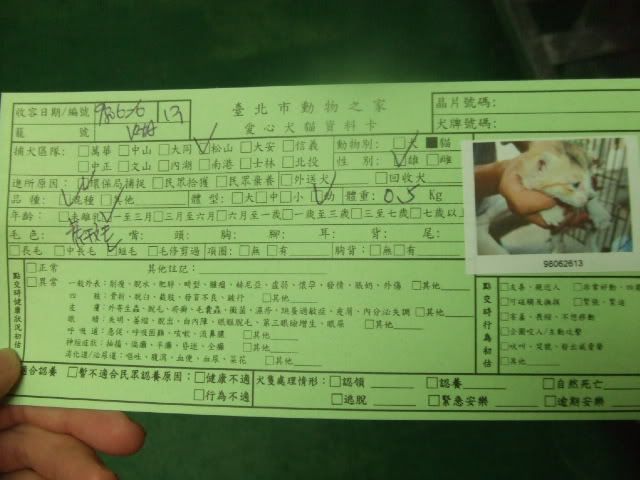 臺北市動物之家
愛心犬貓資料卡
收容日期/編號 13
籠號
晶片號碼:
犬牌號碼:
捕犬區隊: □萬華□中山□大同□松山□大安□信義 動物別:□犬■貓
□中正□文山□內湖□南港□士林□北投 性別:□雄□雌
進所原因:□環保局捕捉□民眾拾獲□民眾棄養□外送犬□回收犬
品種:□混種□其他 體型:□大□中□小□幼 體重: 0.5 Kg
年齡:□未離乳□一至三月□三至六月□六月至一歲□一歲至三歲□三至七歲□七歲以
毛色: 頭: 胸: 腳: 耳: 背: 尾:
□長毛□中長毛□短毛□毛修剪過 項圈:□無□有 胸背:□無□有
98062613
點交時健康狀況初估
□正常 其他註記:
□異常
一般外表:削瘦、脫水、肥胖、畸型、腫瘤、赫尼亞、虛弱、懷孕、發情、脹奶、外傷□其他
四肢:骨折、脫臼、截肢、發育不良、跛行□其他
皮膚:外寄生蟲、脫毛、疥癬、毛囊蟲、黴菌、濕疹、跳蚤過敏症、痩屑、內分泌失調□其他
眼睛:失明、萎縮、脫出、白內障、眼瞼脫毛、第三眼瞼增生、眼屎□其他
呼吸道:急促、呼吸困難、咳嗽、流鼻膿□其他
神經症狀:抽搐、癱瘓、平癱、昏迷、全癱□其他
消化道/泌尿道:嘔吐、腹瀉、血便、血尿、菜花□其他
點交時行為初估
□友善、親近人
□可碰觸及撫摸 □緊張、緊迫
□害羞、畏縮、不想移動
□企圖咬人/主動攻擊
□吠叫、哭號、發出威脅聲
□其他
適合認養 □暫不適合民眾認養原因:□健康不適
□行為不適
犬隻處理情形:□認領 □認養 □自然死亡
□逃脫 □緊急安樂 □逾期安樂